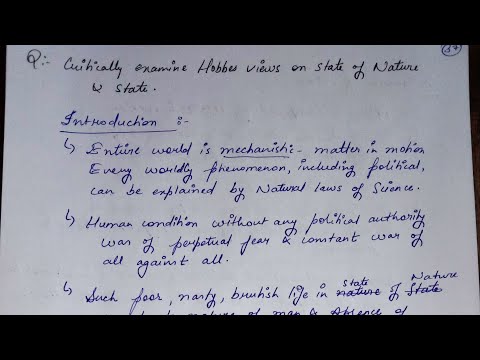 37
Q:- Critically examine Hobbes views on State of Nature
& State.
Introduction :-
↳ Entire world is mechanistic:- matter in motion
Every worldly phenomenon, including political,
can be explained by Natural laws of Science.
↳ Human condition without any political authority
war of perpetual fear & constant war of
all against all.
↳ Such poor, nasty, brutish life in state of Nature
nature of man & Absence of